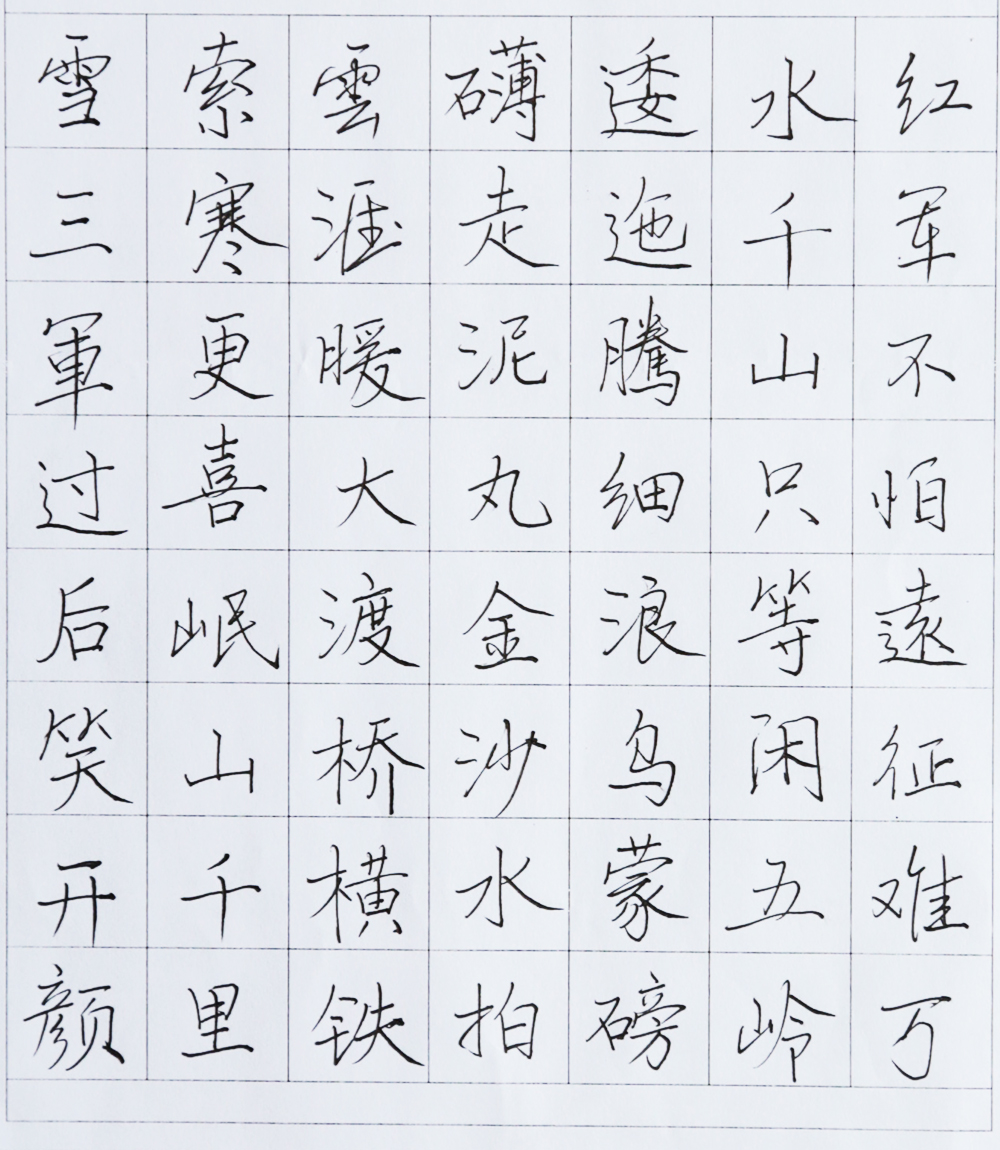 红军不怕遠征难万
水千山只等闲五岭
逶迤騰细浪乌蒙磅
礴走泥丸金沙水拍
雲涯暖大渡桥横铁
索寒更喜岷山千里
雪三軍过后笑开颜